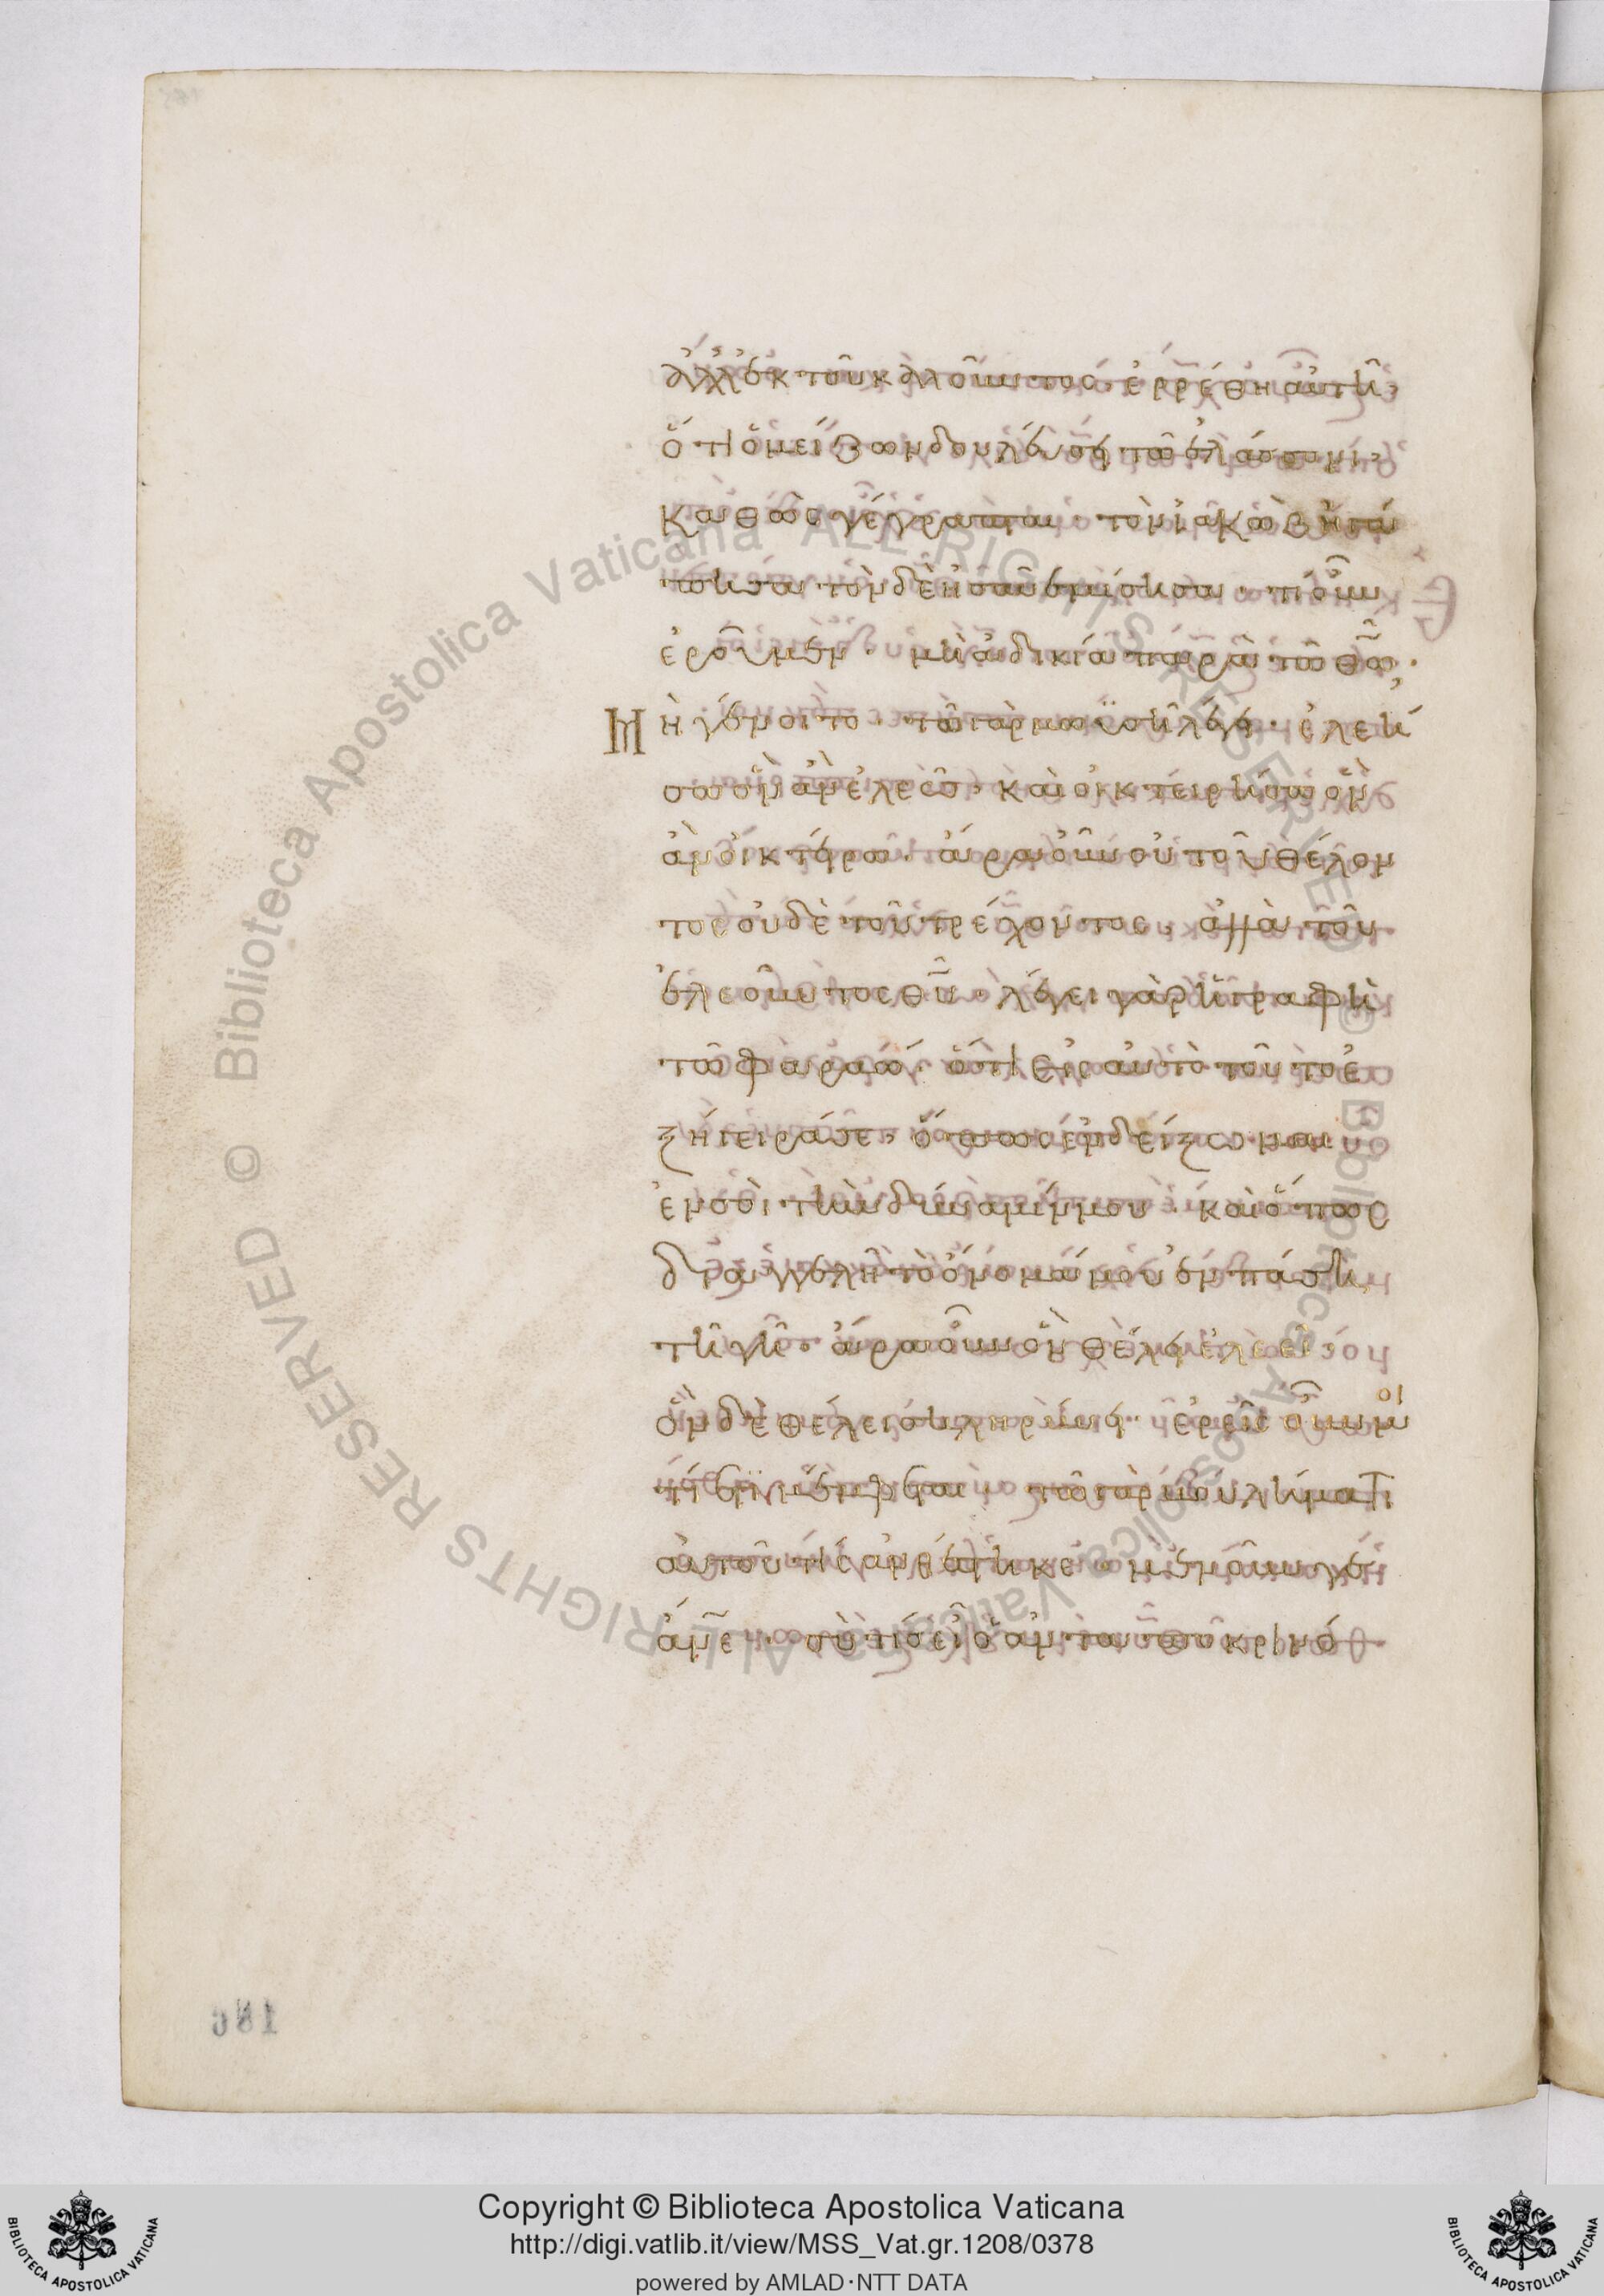 ἀλλ' ἐκ τοῦ καλοῦντος ἐρρέθη αὐτῆ·
ὅτι ὁ μείζων δουλεύσει τῶ ἐλάσσονι,
καθὼς γέγραπται· τὸν ἰακὼβ ἠγά
πησα τὸν δὲ ἠσαῦ ἐμίσησα· τί οὖν
ἐροῦμεν· μὴ ἀδικία παρὰ τῶ θῶ;
Μὴ γένοιτο· τῶ γὰρ μωϋσῆ λέγει· ἐλεή
σω ὃν ἂν ἐλεῶ· καὶ οἰκτειρήσω ὃν
ἂν οἰκτείρω· ἄρα οὖν οὐ τοῦ θέλον
τος οὐδὲ τοῦ τρέχοντος· ἀλλὰ τοῦ
ἐλεοῦντος θῦ· λέγει γὰρ ἡ γραφὴ
τῶ φαραώ· ὅτι εἰς αὐτὸ τοῦτο ἐ
ξήγειρά σε· ὅπως ἐνδείξωμαι
ἐν σοὶ τὴν δύναμίν μου· καὶ ὅπως
διαγγελῆ τὸ ὄνομά μου ἐν πάση
τῆ γῆ· ἄρα οὖν ὃν θέλει ἐλεεῖ
ὃν δὲ θέλει σκληρύνει· ἐρεῖς οὖν μοι
τί ἔτι μέμφεται· τῶ γὰρ βουλήματι
αὐτοῦ τίς ἀνθέστηκε· μενοῦνγε
ἄνε· σὺ τίς εἶ ὁ ἀνταποκρινό
186
Copyright © Biblioteca Apostolica Vaticana
http://digi.vatlib.it/view/MSS_Vat.gr.1208/0378
powered by AMLAD·NTT DATA
BIBLIOTECA APOSTOLICA VATICANA
BIBLIOTECA APOSTOLICA VATICANA
© Biblioteca Apostolica Vaticana ALL RIGHTS RESERVED © Biblioteca Apostolica Vaticana ALL RIGHTS RESERVED